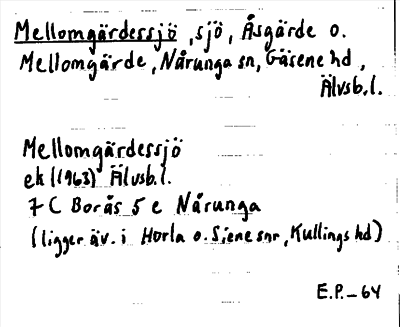 Mellomgärdessjö, sjö, Åsgärde o.
Mellomgärde, Nårunga sn, Gäsene hd,
Älvsb.l.
Mellomgärdessjö
ek (1963) Älvsb.l.
7 C Borås 5 e Nårunga
(ligger äv. i Horla o. Siene snr, Kullings hd)
E.P.–64